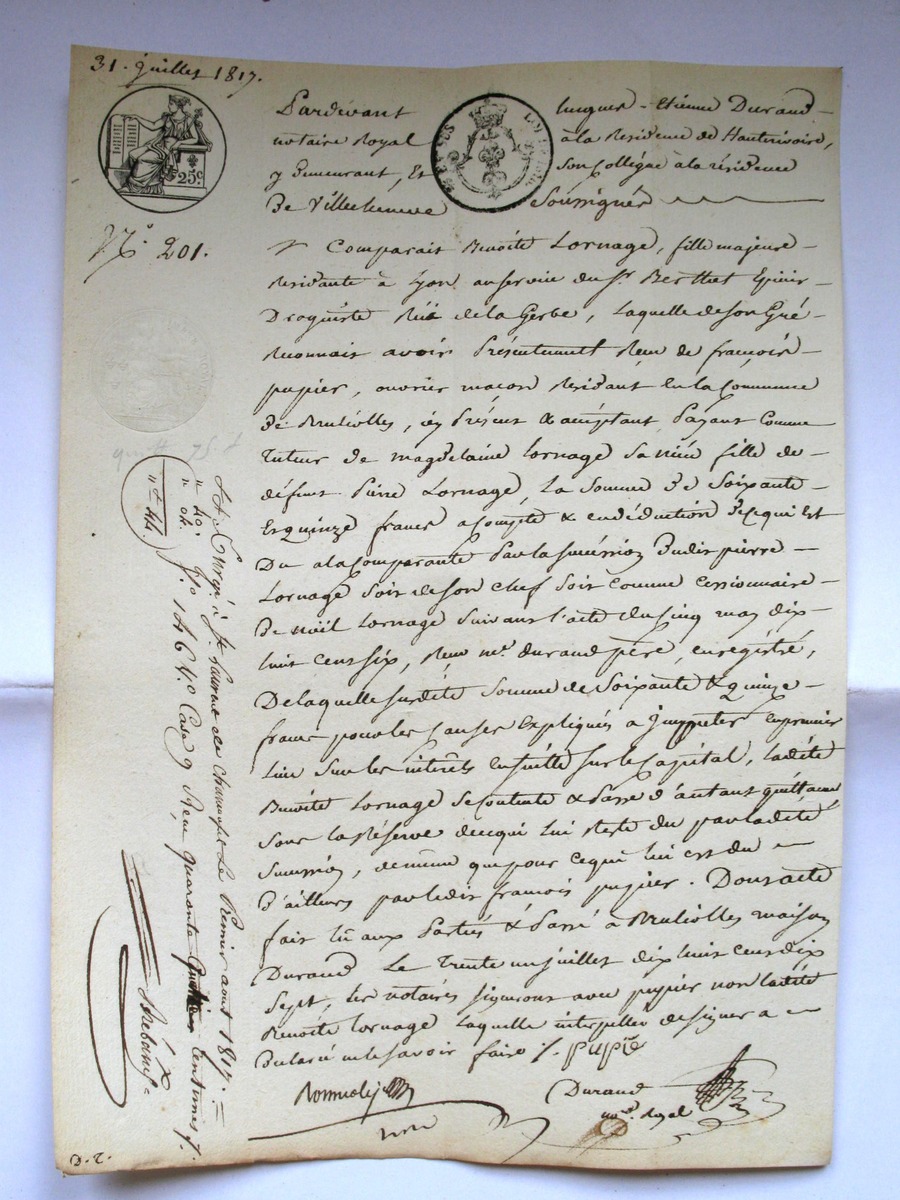 31. juillet 1817.
25c
Pardevant Jacques-Etienne Durand
notaire Royal à la Residence de Hauterivoire,
y Demeurant, Et son Collégue à la résidence
De Villecheneve Soussignés
N.° 201.
Comparait Benoite Lornage, fille majeure
Residante à Lyon au service du Sr. Berthet Epicier
Droguiste Rüe de la Gerbe, Laquelle de son Gré
Reconnait avoir Présentement Reçu de françois
pupier, ouvrier maçon Residant En la Commune
De Brulliolles, icy Présent & acceptant Payant Comme
Tuteur de magdelaine Lornage sa niéce fille de
défunt Pierre Lornage, la Somme De Soixante
Et quinze francs acompte & en déduction De cequi Est
Du ala Comparante Par la succession Dudit pierre
Lornage Soit de son chef Soit comme Cessionnaire
De noël Lornage Suivant l'acte du cinq may dix
huit cent six, Reçu me. durand père, enregistré,
De laquelle susdite Somme de Soixante & quinze
francs pour les Causes Expliqués a Imputer en premier
Lieu Sur les intérêts ensuitte sur le Capital, Ladite
Benoite Lornage Se contente & Passe d'autant quittance
Sous la Réserve de cequi Lui Reste du par ladite
Succession, de même que pour ce qui lui est du
D'ailleurs par ledit françois pupier. Dont acte
fait lu aux Parties & Passé à Brulliolles maison
Durand Le trente un juillet dix huit cent dix
Sept, les notaires signeront avec pupier non ladite
Benoite Lornage Laquelle interpellée de signer a
Déclaré ne le savoir faire
pupié
Durand
nore. Royal
nore
D.2.
Enregistré à St. Laurent de Chamousset Le Premier aout 1817.
f.° 146 v.° Case 9 Reçu quarante quatre Centimes
40.
04.
44.